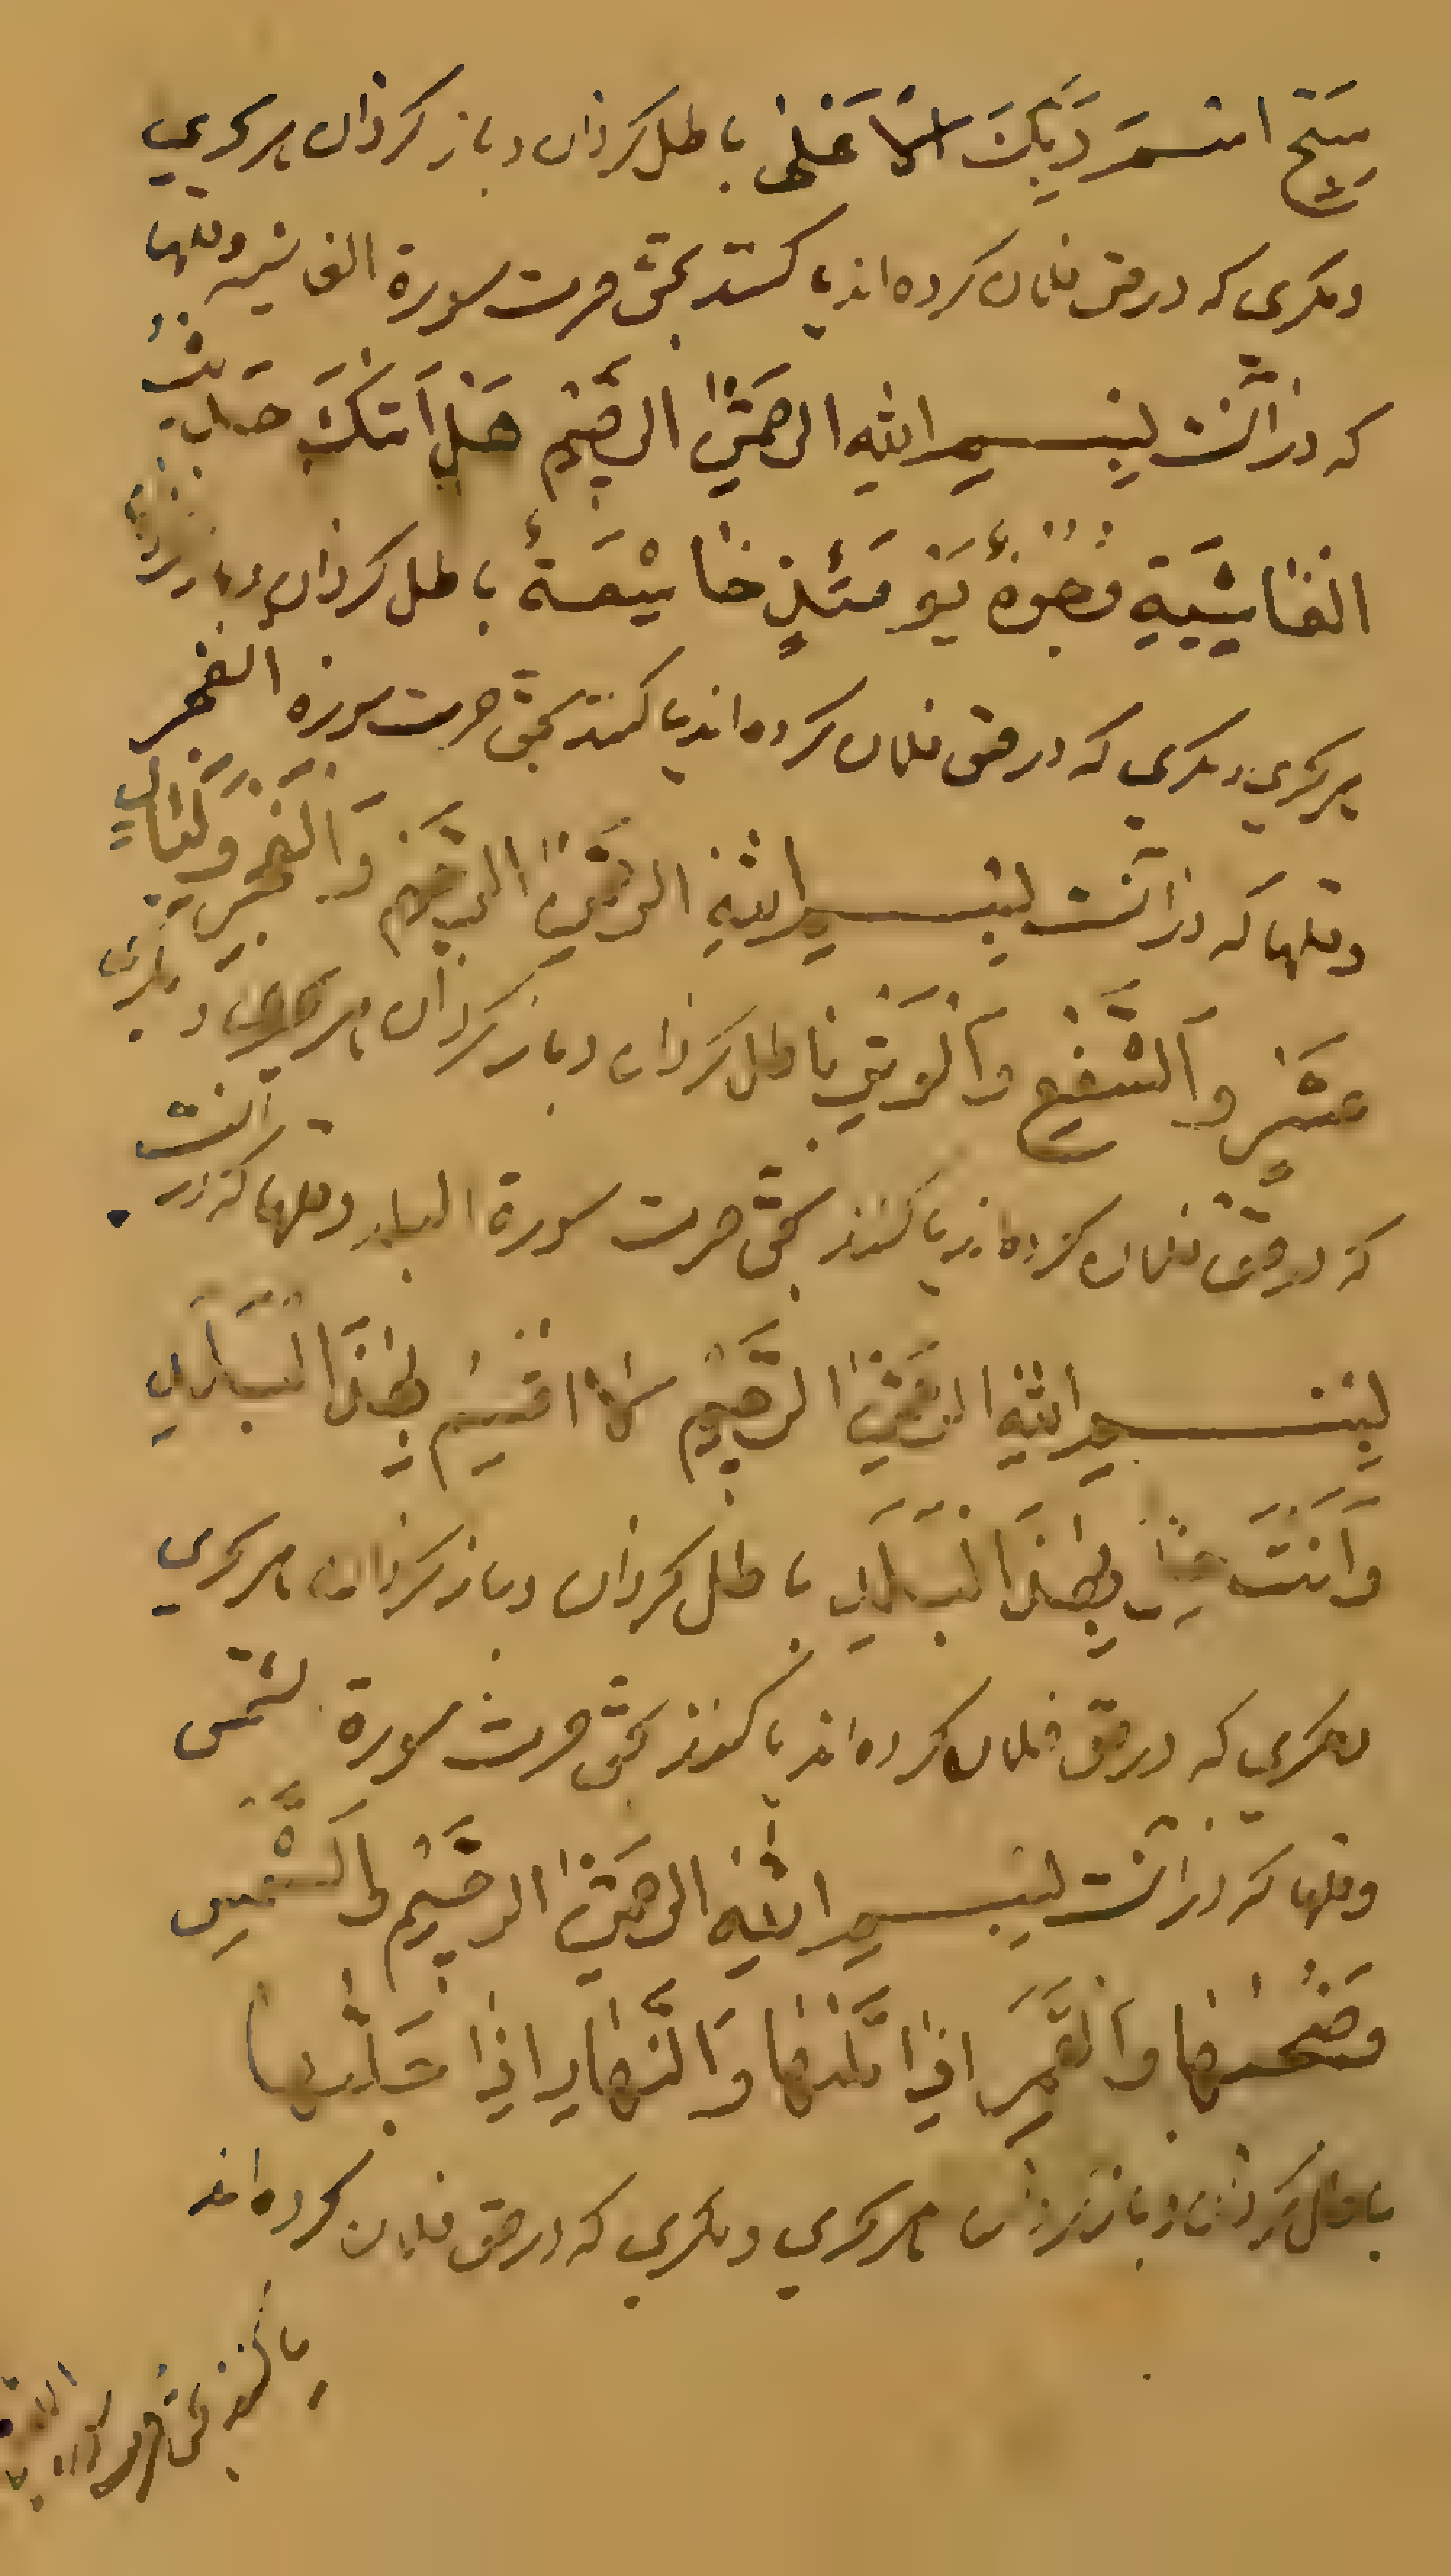 سَبِّحِ اسْمَ رَبِّكَ الْأَعْلَى باطل كردان و باز كردان هر مكري
و مكري كه در حق فلان كرده اند يا كنند بحق حرمت سورة الغاشيه و فلها
كه در آنست بِسْمِ اللهِ الرَّحْمٰنِ الرَّحِيْمِ هَلْ اَتٰكَ حَدِيْثُ
الْغَاشِيَةِ وُجُوْهٌ يَوْمَئِذٍ خَاشِعَةٌ باطل كردان و باز كردان
هر مكري و مكري كه در حق فلان كرده اند يا كنند بحق حرمت سوره الفجر
و فلها كه در آنست بِسْمِ اللهِ الرَّحْمٰنِ الرَّحِيْمِ وَالْفَجْرِ وَلَيَالٍ
عَشْرٍ وَالشَّفْعِ وَالْوَتْرِ باطل كردان و باز كردان هر مكري و مكري
كه در حق فلان كرده اند يا كنند بحق حرمت سورة البلد و فلها كه در آنست
بِسْمِ اللهِ الرَّحْمٰنِ الرَّحِيْمِ لَا اُقْسِمُ بِهٰذَا الْبَلَدِ
وَاَنْتَ حِلٌّ بِهٰذَا الْبَلَدِ باطل كردان و باز كردان هر مكري
و مكري كه در حق فلان كرده اند يا كنند بحق حرمت سورة الشمس
و فلها كه در آنست بِسْمِ اللهِ الرَّحْمٰنِ الرَّحِيْمِ وَالشَّمْسِ
وَضُحٰىهَا وَالْقَمَرِ اِذَا تَلٰىهَا وَالنَّهَارِ اِذَا جَلّٰىهَا
باطل كردان و باز كردان هر مكري و مكري كه در حق فلان كرده اند
يا كنند بحق